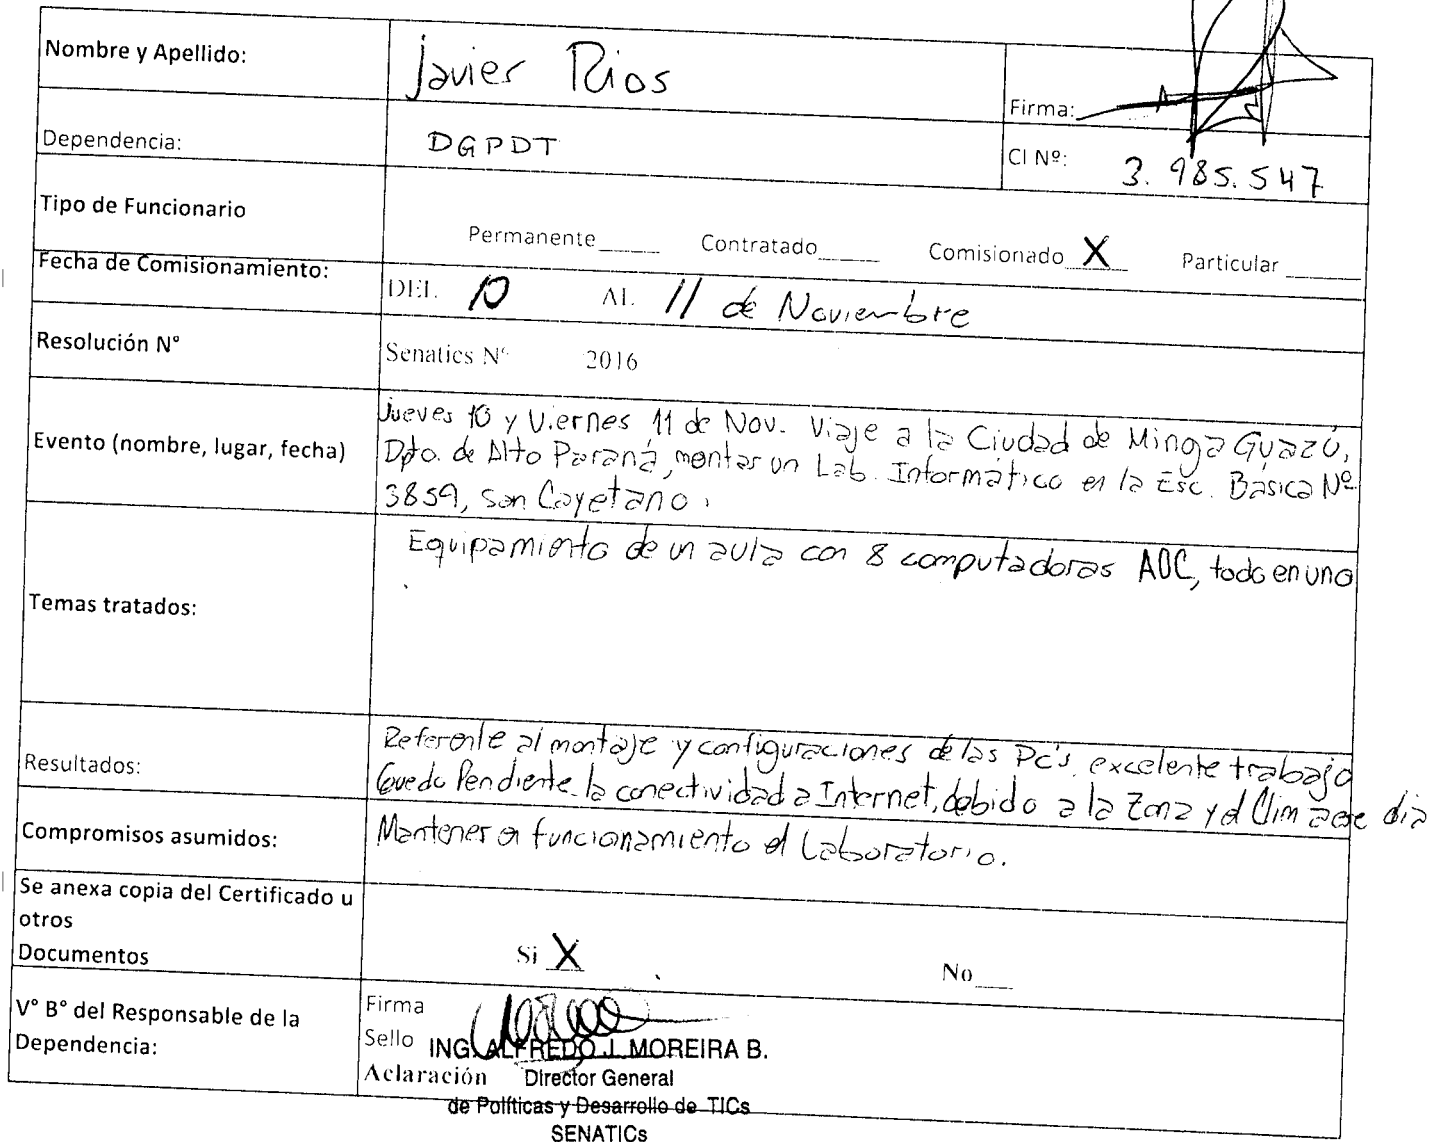 Nombre y Apellido: Javier Rios
Firma:
Dependencia: DGPDT
CI Nº: 3.985.547
Tipo de Funcionario
Permanente____ Contratado____ Comisionado X Particular____
Fecha de Comisionamiento: DEL 10 AL 11 de Noviembre
Resolución N° Senatics N° 2016
Evento (nombre, lugar, fecha)
Jueves 10 y Viernes 11 de Nov. Viaje a la Ciudad de Minga Guazú,
Dpto. de Alto Paraná, montar un Lab. Informático en la Esc. Básica Nº
3859, San Cayetano.
Temas tratados:
Equipamiento de un aula con 8 computadoras AOC, todo en uno
Resultados:
Referente al montaje y configuraciones de las Pc's, excelente trabajo
Quedo Pendiente la conectividad a Internet, debido a la Zona y el Clima ese dia
Compromisos asumidos: Mantener en funcionamiento el Laboratorio.
Se anexa copia del Certificado u
otros
Documentos
Si X No___
V° B° del Responsable de la
Dependencia:
Firma
Sello ING. ALFREDO J. MOREIRA B.
Aclaración Director General
de Políticas y Desarrollo de TICs
SENATICs